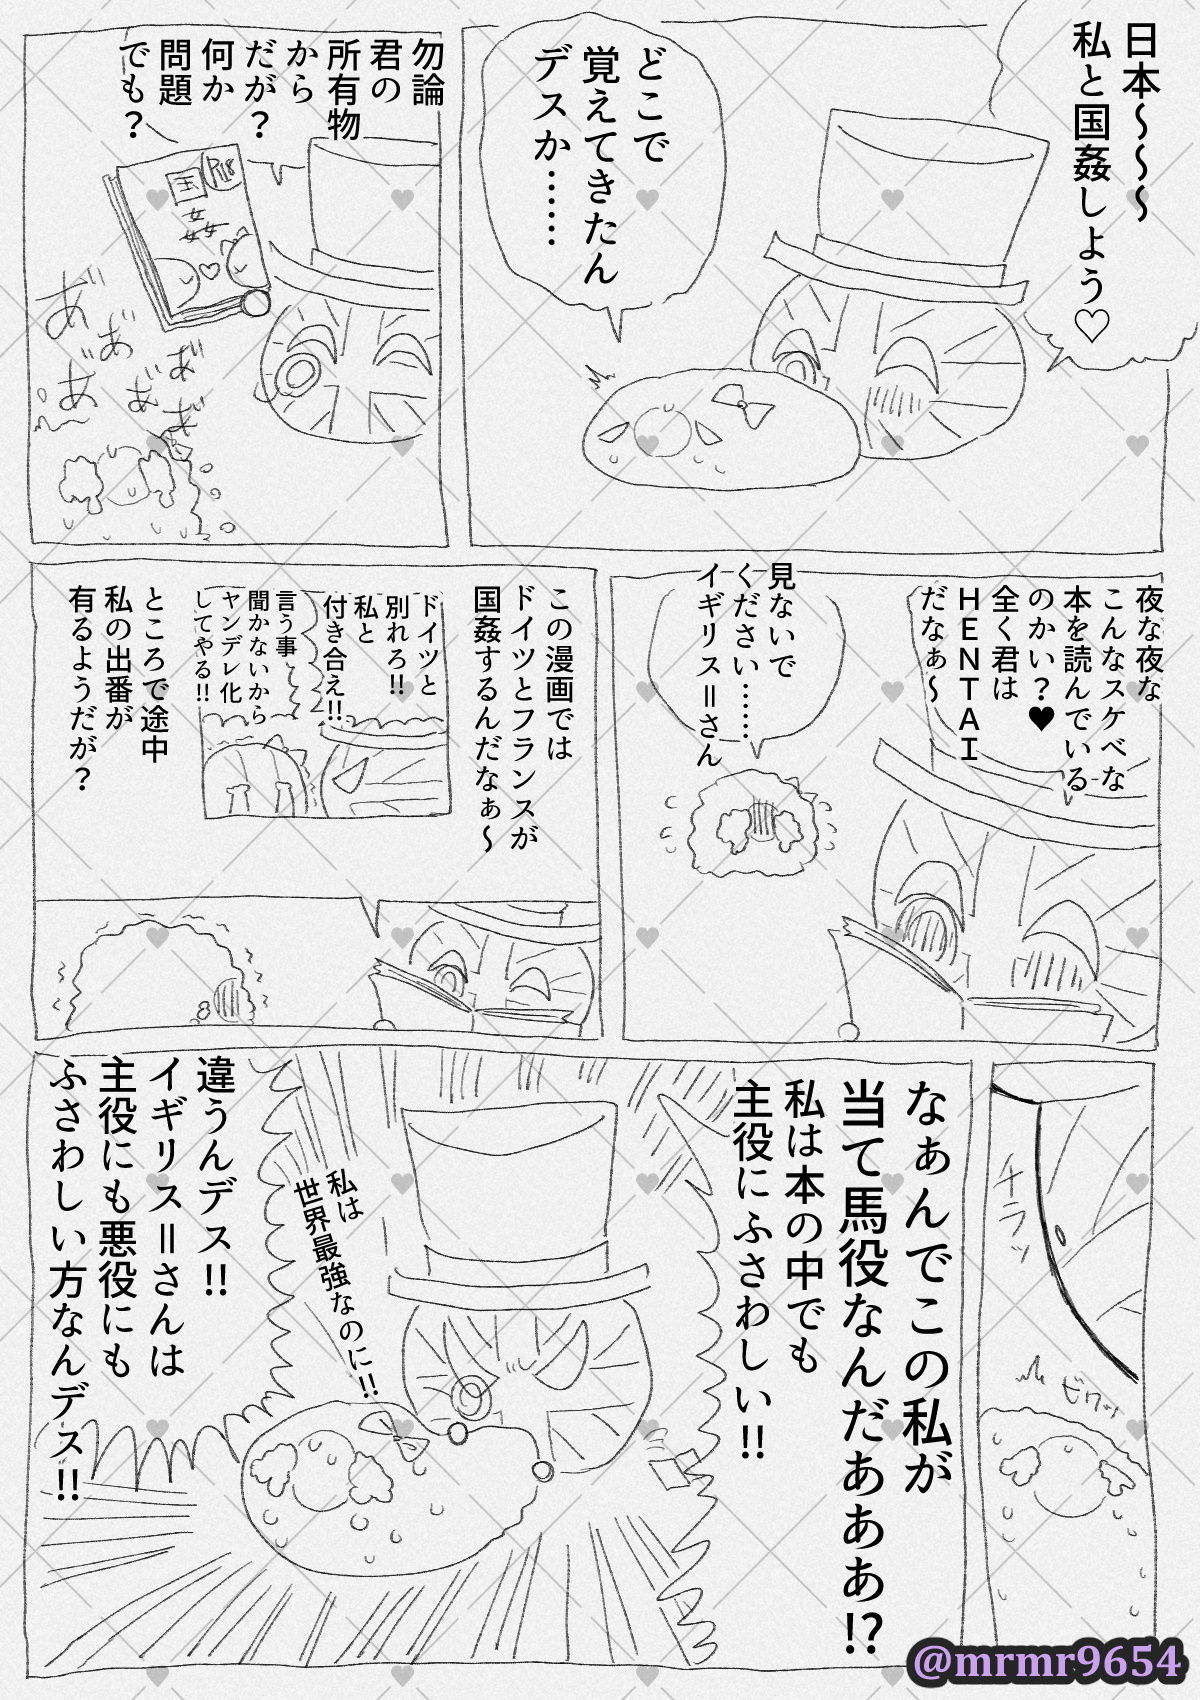 日本～～～
私と国姦しよう♡
どこで
覚えてきたん
デスか……
勿論
君の
所有物
から
だが？
何か
問題
でも？
R18
国
姦
あ゛
あ゛
あ゛
あ゛
あ゛
あ゛
夜な夜な
こんなスケベな
本を読んでいる
のかい？♥
全く君は
HENTAI
だなぁ～
見ないで
ください……
イギリス＝さん
この漫画では
ドイツとフランスが
国姦するんだなぁ～
ドイツと
別れろ!!
私と
付き合え!!
言う事
聞かないから
ヤンデレ化
してやる!!
ところで途中
私の出番が
有るようだが？
チラッ
ビクッ
なぁんでこの私が
当て馬役なんだあああ!?
私は本の中でも
主役にふさわしい!!
私は
世界最強なのに!!
違うんデス!!
イギリス＝さんは
主役にも悪役にも
ふさわしい方なんデス!!
@mrmr9654